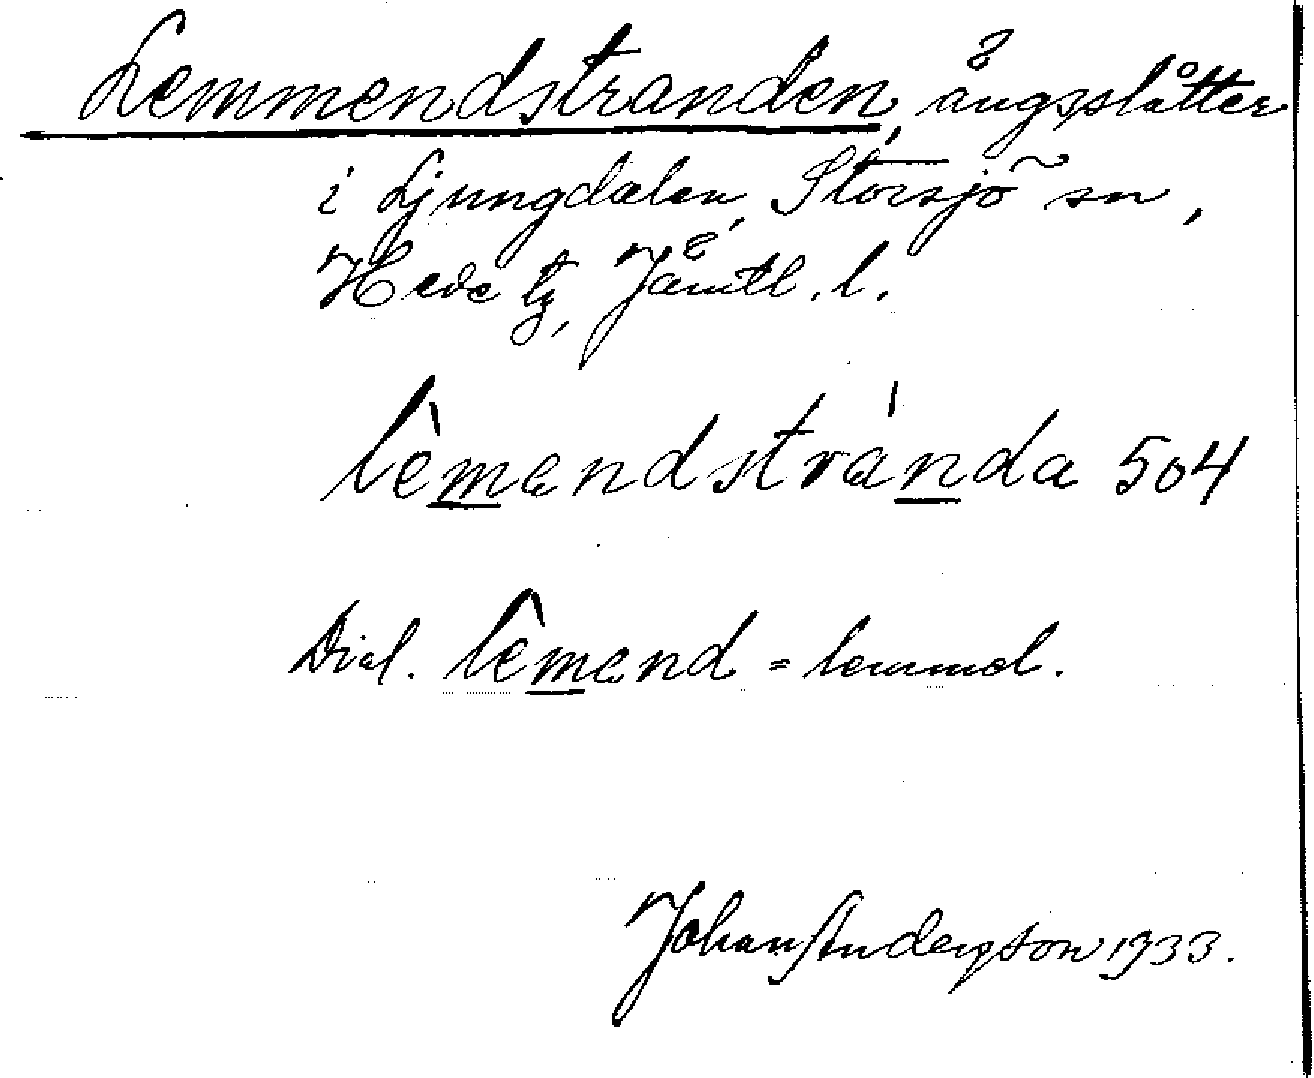 Lemmendstranden, ängsslåtter
i Ljungdalen, Storsjö sn,
Hede tg, Jämtl. l.
lèmendstrànda 504
Dial. lêmend = lemmel.
Johan Anderson 1933.